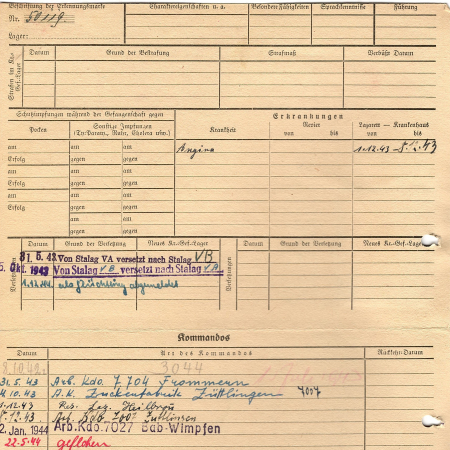 Beschriftung der Erkennungsmarke
Nr. 50119.
Lager:
Charaktereigenschaften u. a.
Besondere Fähigkeiten
Sprachkenntnisse
Führung
Strafen im Kr.-Gef.-Lager
Datum
Grund der Bestrafung
Strafmaß
Verbüßt Datum
Schutzimpfungen während der Gefangenschaft gegen
Pocken
Sonstige Impfungen
(Ty.-Paratyph., Ruhr, Cholera usw.)
Erkrankungen
Krankheit
Revier
von bis
Lazarett — Krankenhaus
von bis
am am am
Erfolg gegen gegen
am am am
Erfolg gegen gegen
am am am
Erfolg gegen gegen
am am am
Erfolg gegen gegen
Angina
1.12.43 - 8.12.43
Versetzungen
Datum
Grund der Versetzung
Neues Kr.-Gef.-Lager
Versetzungen
Datum
Grund der Versetzung
Neues Kr.-Gef.-Lager
31. 5. 43 Von Stalag VA versetzt nach Stalag VB
5. Okt. 1943 Von Stalag V B versetzt nach Stalag V A
1.12.44. als Flüchtling abgemeldet
Kommandos
Datum
Art des Kommandos
Rückkehr-Datum
3044
31.5.43 Arb. Kdo. 7 704 Frommern
10.43 A.K. Zuckerfabrik Züttlingen 7007
1.12.43 Res. Laz. Heilbronn
8.12.43
2. Jan. 1944 Arb.Kdo. 7027 Bdb-Wimpfen
22.5.44 geflohen